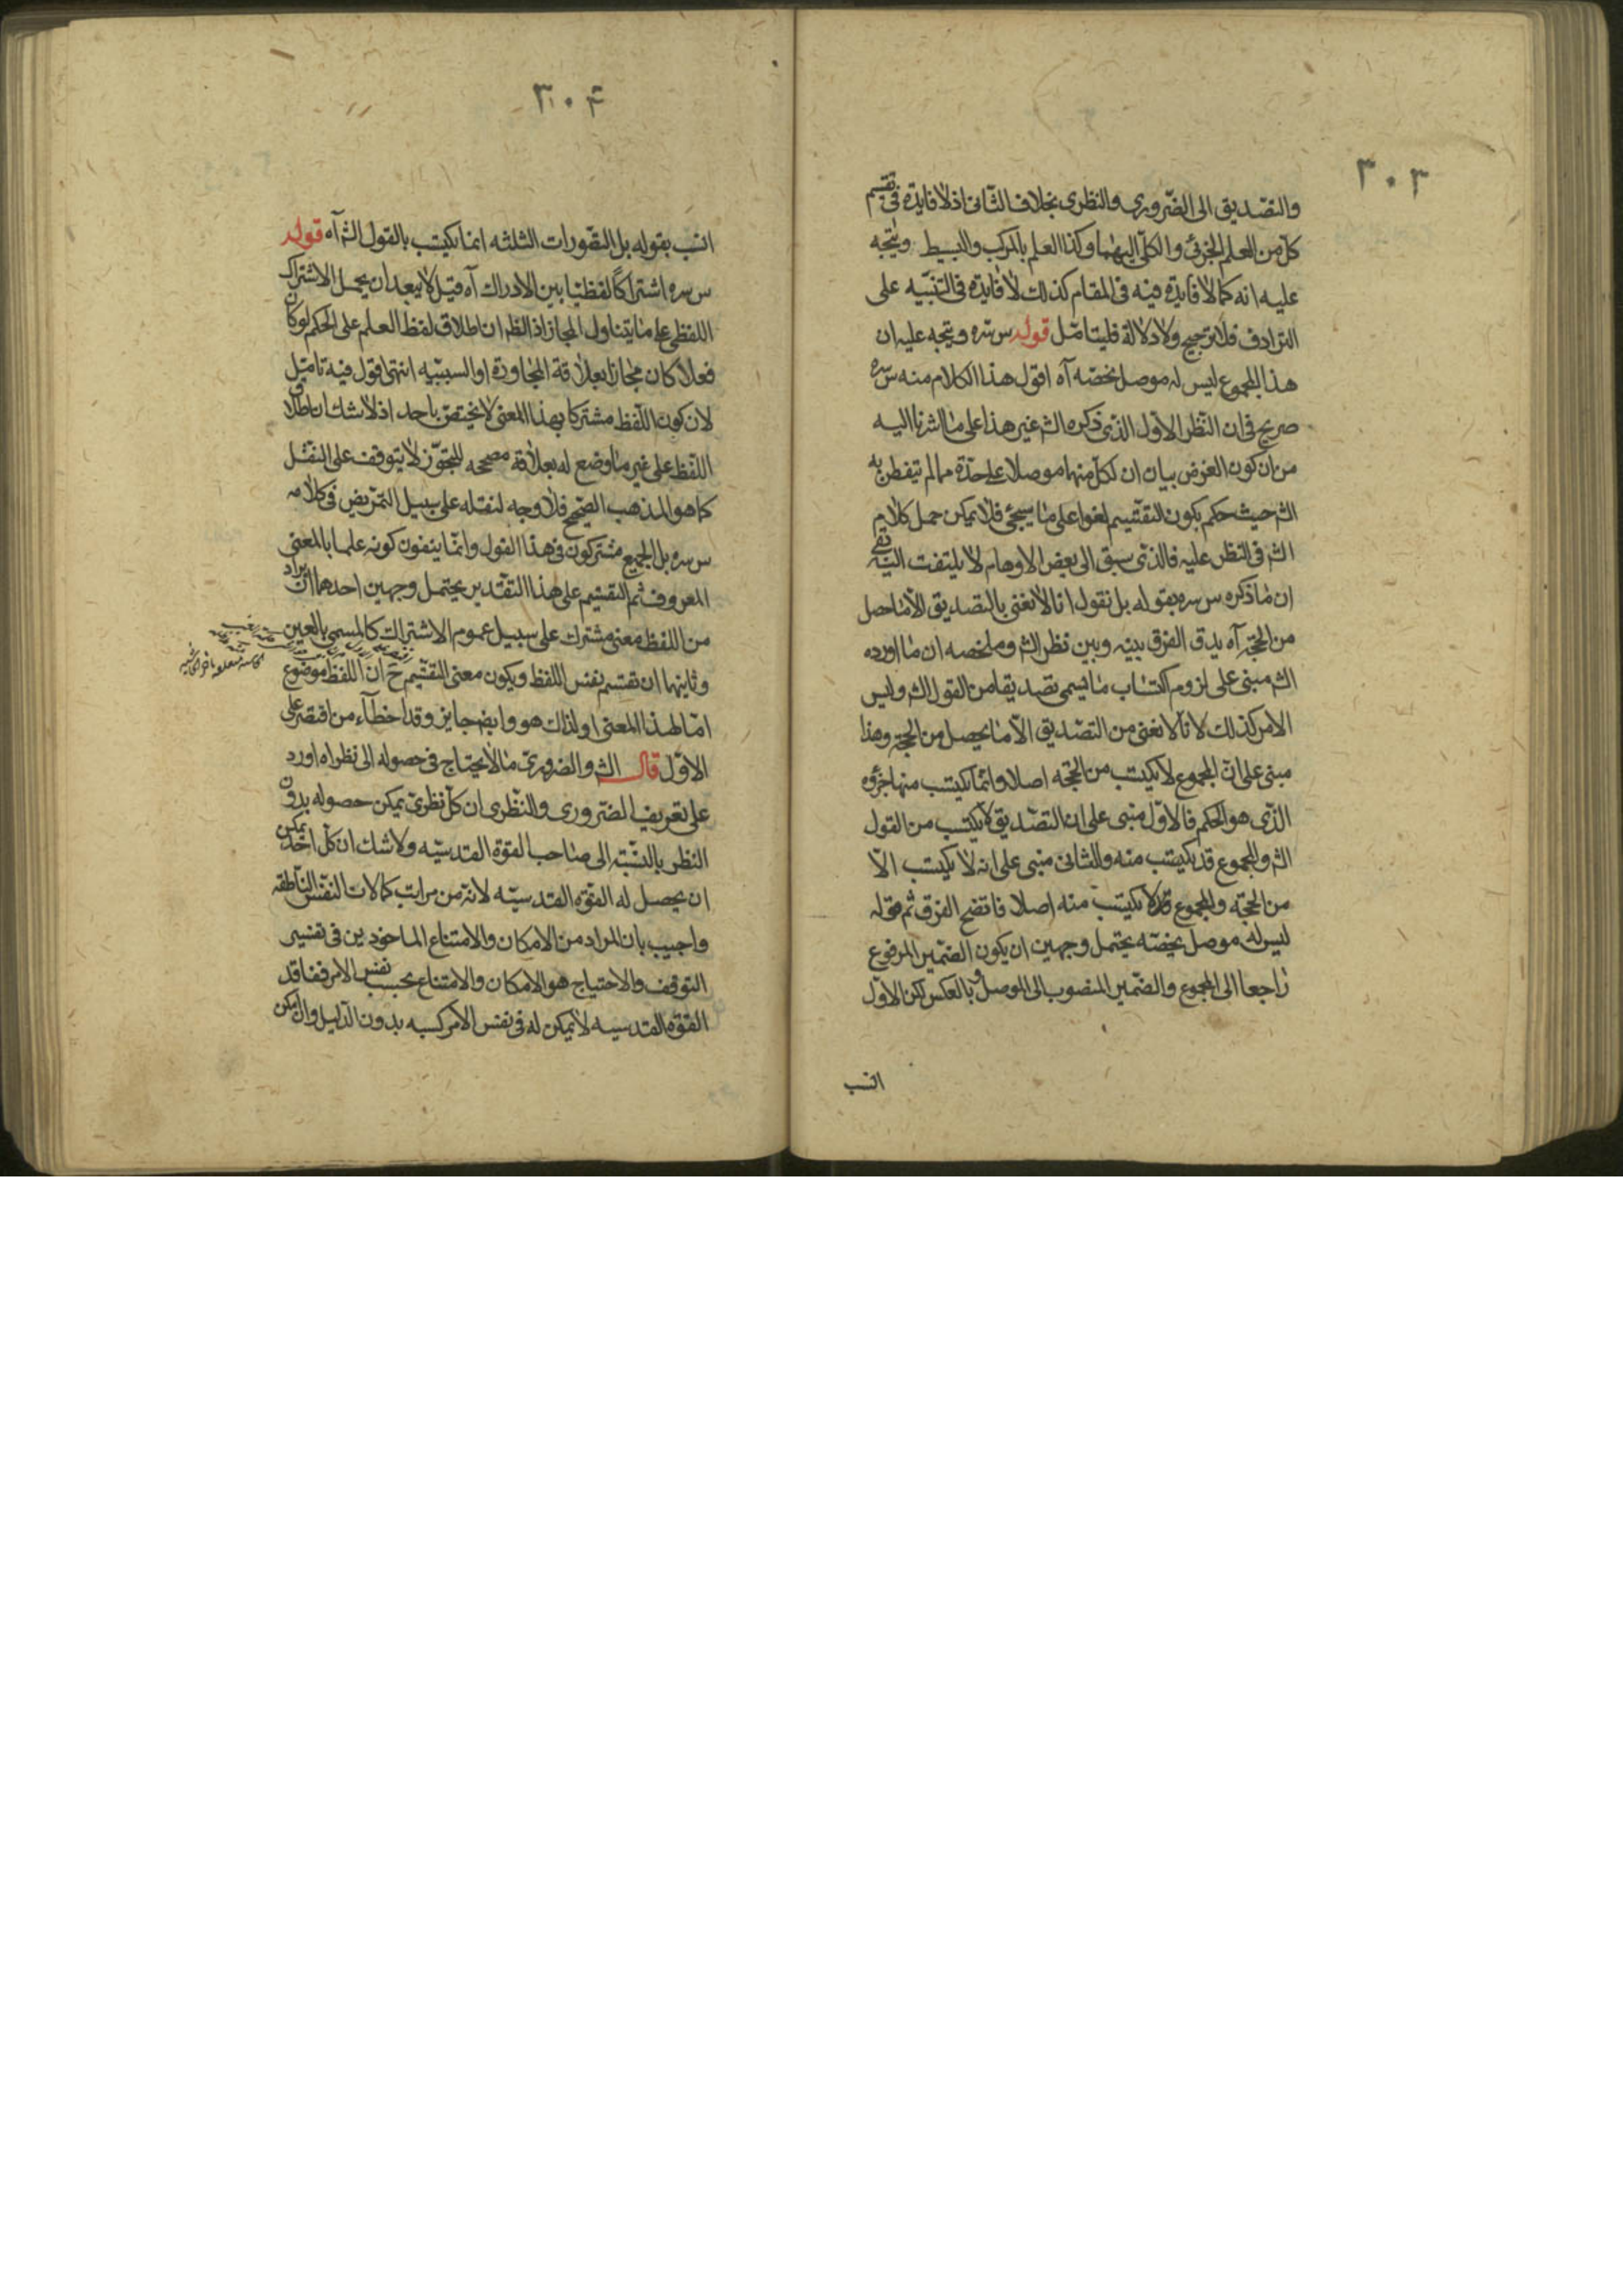 ٣٠٣
والتصديق الى الضرورى والنظرى بخلاف الثانى اذ لا فايدة فى تقسيم
كل من العلم الجزئى والكلى اليهما وكذا العلم بالمركب والبسيط ويتجه
عليه انه كما لا فايدة فيه فى المقام كذلك لا فايدة فى التنبيه على
الترادف فلا ترجيح ولا دلالة فليتامل قوله س سره ويتجه عليه ان
هذا المجموع ليس له موصل يخصه آه اقول هذا الكلام منه س سره
صريح فى ان النظر الاول الذى ذكره الشه غير هذا على ما اشرنا اليه
من ان كون الغرض بيان ان لكل منهما موصلا على حدة مما لم يتفطن به
الشه حيث حكم بكون التقسيم لغوا على ما سيجئ فلا يمكن حمل كلام
الشه فى النظر عليه فالذى سبق الى بعض الاوهام لا يلتفت اليه بقى
ان ما ذكره س سره بقوله بل نقول انا لا نعنى بالتصديق الا ما حصل
من الحجة آه يدق الفرق بينه وبين نظر الشه وملخصه ان ما اورده
الشه مبنى على لزوم اكتساب ما يسمى تصديقا من القول الشه وليس
الامر كذلك لانا لا نعنى من التصديق الا ما يحصل من الحجة وهذا
مبنى على ان المجموع لا يكتسب من الحجة اصلا وانما يكتسب منها جزؤه
الذى هو الحكم فالاول مبنى على ان التصديق لا يكتسب من القول
الشه والمجموع قد يكتسب منه والثانى مبنى على انه لا يكتسب الا
من الحجة والمجموع لا يكتسب منه اصلا فاتضح الفرق ثم قوله
ليس له موصل يخصه يحتمل وجهين ان يكون الضمير المرفوع
راجعا الى المجموع والضمير المنصوب الى الموصل وبالعكس لكن الاول
انسب
٣٠۴
انسب بقوله بل التصورات الثلثه انما يكتسب بالقول الشه آه قوله
س سره اشتراكا لفظيا بين الادراك آه قيل لا يبعد ان يحمل الاشتراك
اللفظى على ما يتناول المجاز اذ الظه ان اطلاق لفظ العلم على الحكم لو كان
فعلا كان مجازا بعلاقة المجاورة او السببيه انتهى اقول فيه تامل
لان كون اللفظ مشتركا بهذا المعنى لا يختص باحد اذ لا شك ان اطلاق
اللفظ على غير ما وضع له بعلاقة مصححه للتجوز لا يتوقف على النقل
كما هو المذهب الصحيح فلا وجه لنقله على سبيل التمريض فى كلامه
س سره بل الجميع مشتركون فى هذا القول وانما ينفون كونه علما بالمعنى
المعروف ثم التقسيم على هذا التقدير يحتمل وجهين احدهما ان يراد
من اللفظ معنى مشترك على سبيل عموم الاشتراك كالمسمى بالعين
وثاينهما ان تقسم نفس اللفظ ويكون معنى التقسيم ح ان اللفظ موضوع
اما لهذا المعنى او لذاك هو وايضه جايز وقد اخطآء من اقتصر على
الاول قال الشه والضرورى ما لا يحتاج فى حصوله الى نظر اه اورد
على تعريف الضرورى والنظرى ان كل نظرى يمكن حصوله بدون
النظر بالنسبة الى صاحب القوة القدسيه ولا شك ان كل احد يمكن
ان يحصل له القوة القدسيه لانه من مراتب كمالات النفس الناطقه
واجيب بان المراد من الامكان والامتناع الماخوذين فى تفسير
التوقف والاحتياج هو الامكان والامتناع بحسب نفس الامر ففاقد
القوة القدسيه لا يمكن له فى نفس الامر كسبه بدون الدليل وان امكن